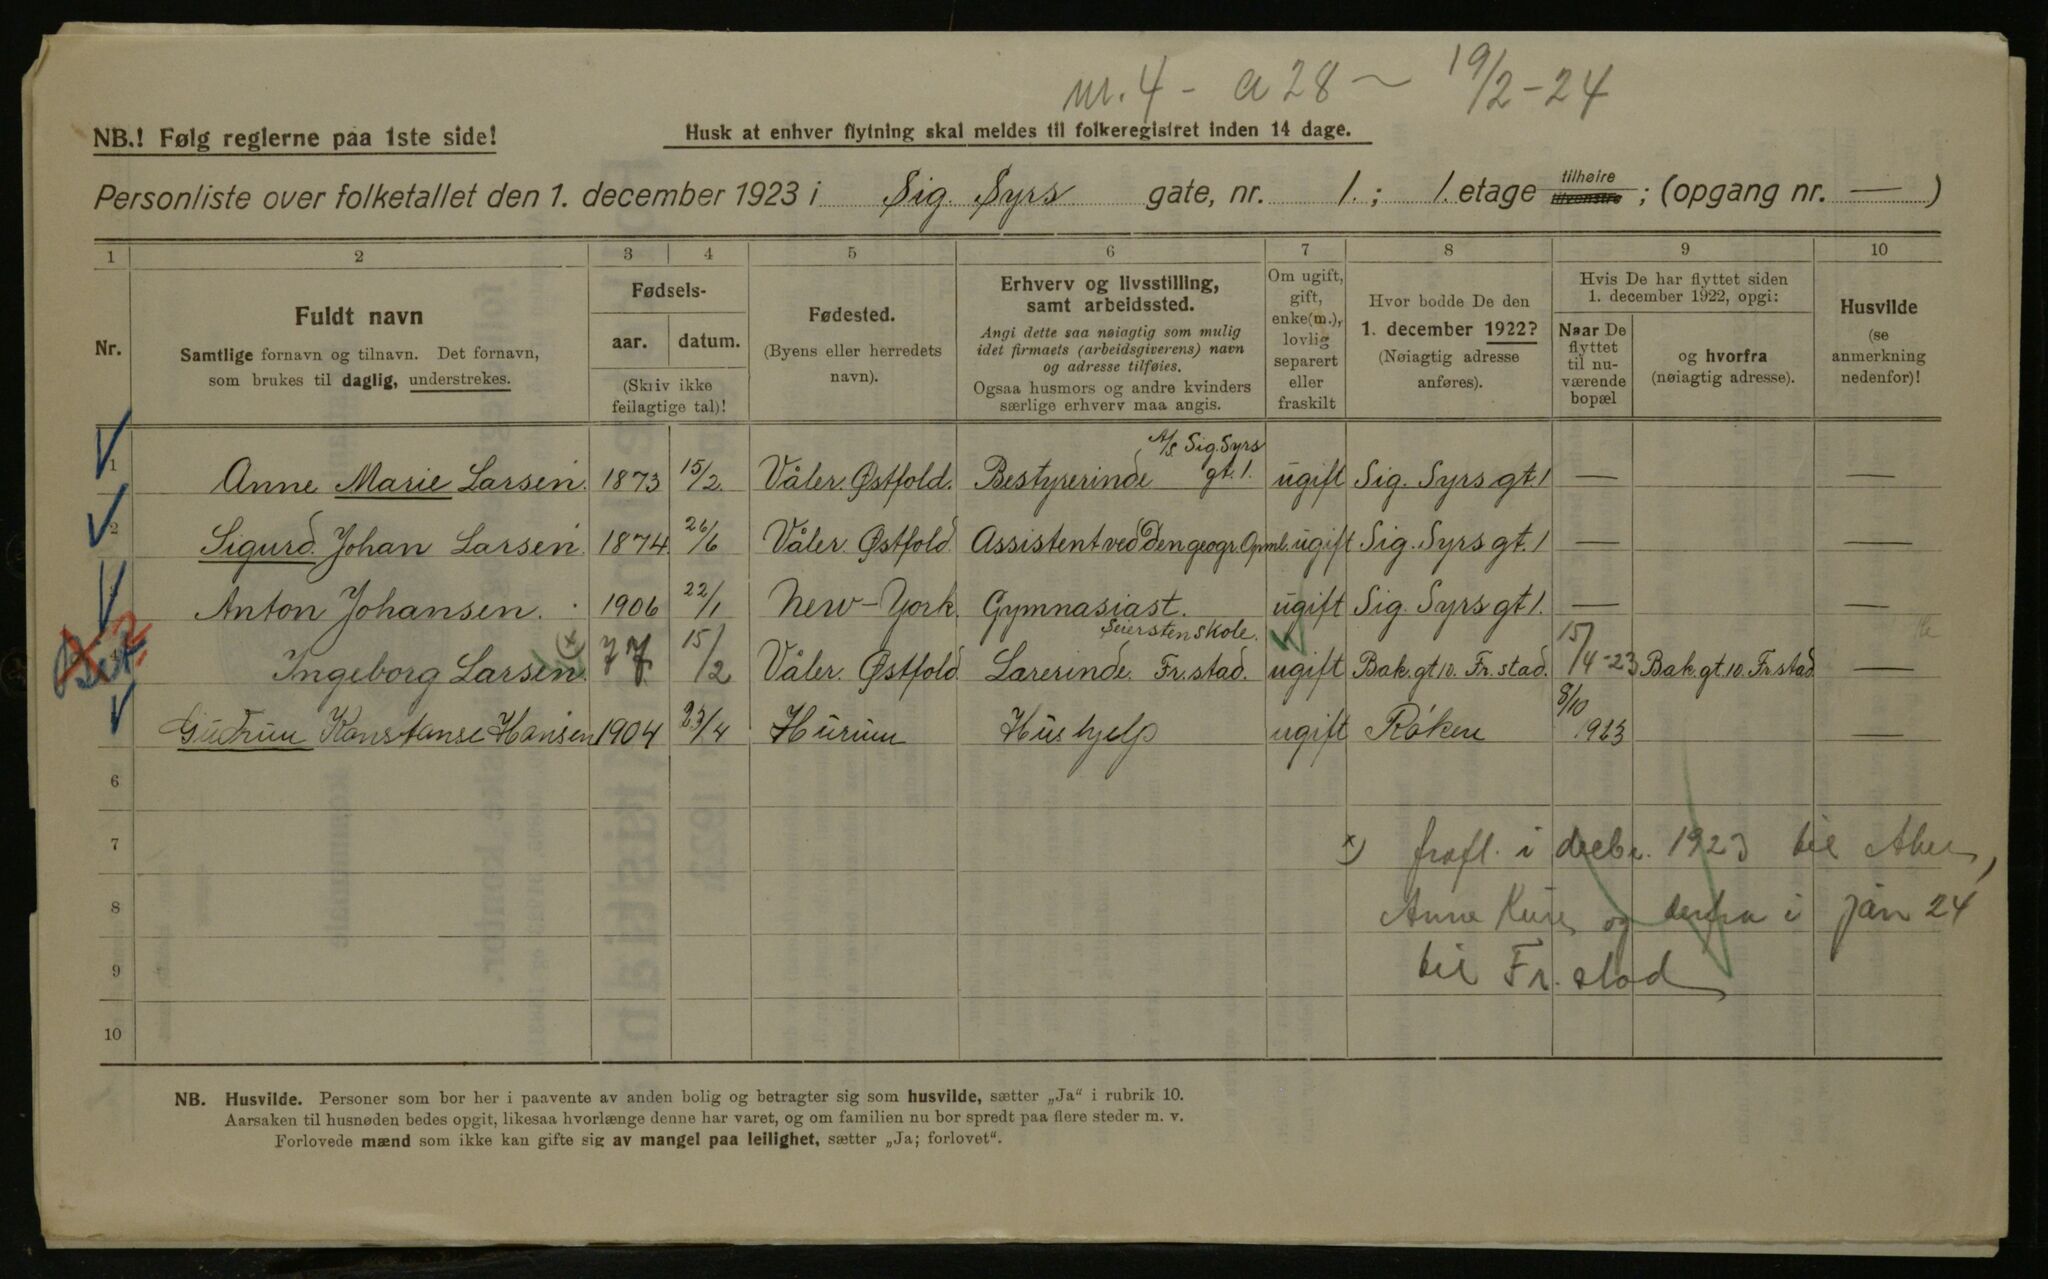 m. 4 - a 28 ~ 19/2-24
NB.! Følg reglerne paa 1ste side!
Husk at enhver flytning skal meldes til folkeregistret inden 14 dage.
Personliste over folketallet den 1. december 1923 i Sig. Syrs gate, nr. 1. ; 1. etage tilhøire tilvenstre ; (opgang nr. — )
1 2 3 4 5 6 7 8 9 10
Nr.
Fuldt navn
Samtlige fornavn og tilnavn. Det fornavn,
som brukes til daglig, understrekes.
Fødsels-
aar. datum.
(Skriv ikke
feilagtige tal)!
Fødested.
(Byens eller herredets
navn).
Erhverv og livsstilling,
samt arbeidssted.
Angi dette saa nøiagtig som mulig
idet firmaets (arbeidsgiverens) navn
og adresse tilføies.
Ogsaa husmors og andre kvinders
særlige erhverv maa angis.
Om ugift,
gift,
enke(m.),
lovlig
separert
eller
fraskilt
Hvor bodde De den
1. december 1922?
(Nøiagtig adresse
anføres).
Hvis De har flyttet siden
1. december 1922, opgi:
Naar De
flyttet
til nu-
værende
bopæl
og hvorfra
(nøiagtig adresse).
Husvilde
(se
anmerkning
nedenfor)!
1 Anne Marie Larsen. 1873 15/2. Våler. Østfold. Bestyrerinde A/S. Sig. Syrs gt. 1. ugift Sig. Syrs gt. 1 — —
2 Sigurd Johan Larsen. 1874 26/6 Våler. Østfold. Assistent ved Den geogr. Opml. ugift Sig. Syrs gt. 1 — —
Anton Johansen. 1906 22/1 New-York. Gymnasiast. ugift Sig. Syrs gt. 1. — —
Seiersten skole.
4 Ingeborg Larsen. x) 77 15/2 Våler. Østfold Lærerinde. Fr.stad. ugift Bak. gt 10. Fr. stad. 15/4-23 Bak. gt. 10. Fr. stad —
Gudrun Konstanse Hansen 1904 23/4 Hurum Hushjelp ugift Røken 8/10 1923
6
7
8
9
10
x) frafl. i decbr. 1923 til Aker,
Anne Kure og derfra i jan 24
til Fr. stad
NB. Husvilde. Personer som bor her i paavente av anden bolig og betragter sig som husvilde, sætter „Ja“ i rubrik 10.
Aarsaken til husnøden bedes opgit, likesaa hvorlænge denne har varet, og om familien nu bor spredt paa flere steder m. v.
Forlovede mænd som ikke kan gifte sig av mangel paa leilighet, sætter „Ja; forlovet“.